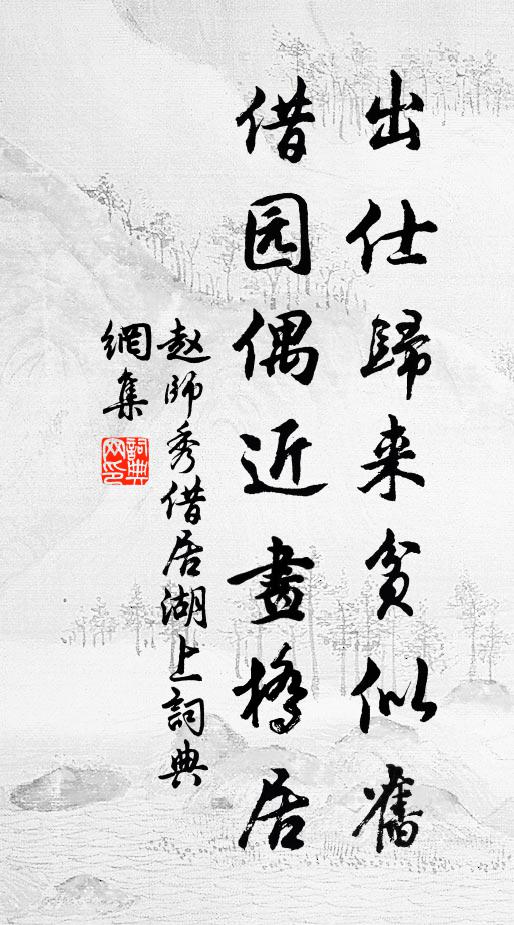 出仕歸来貧似舊
借园偶近畫橋居
赵師秀借居湖上詞典
網集
詞典网印